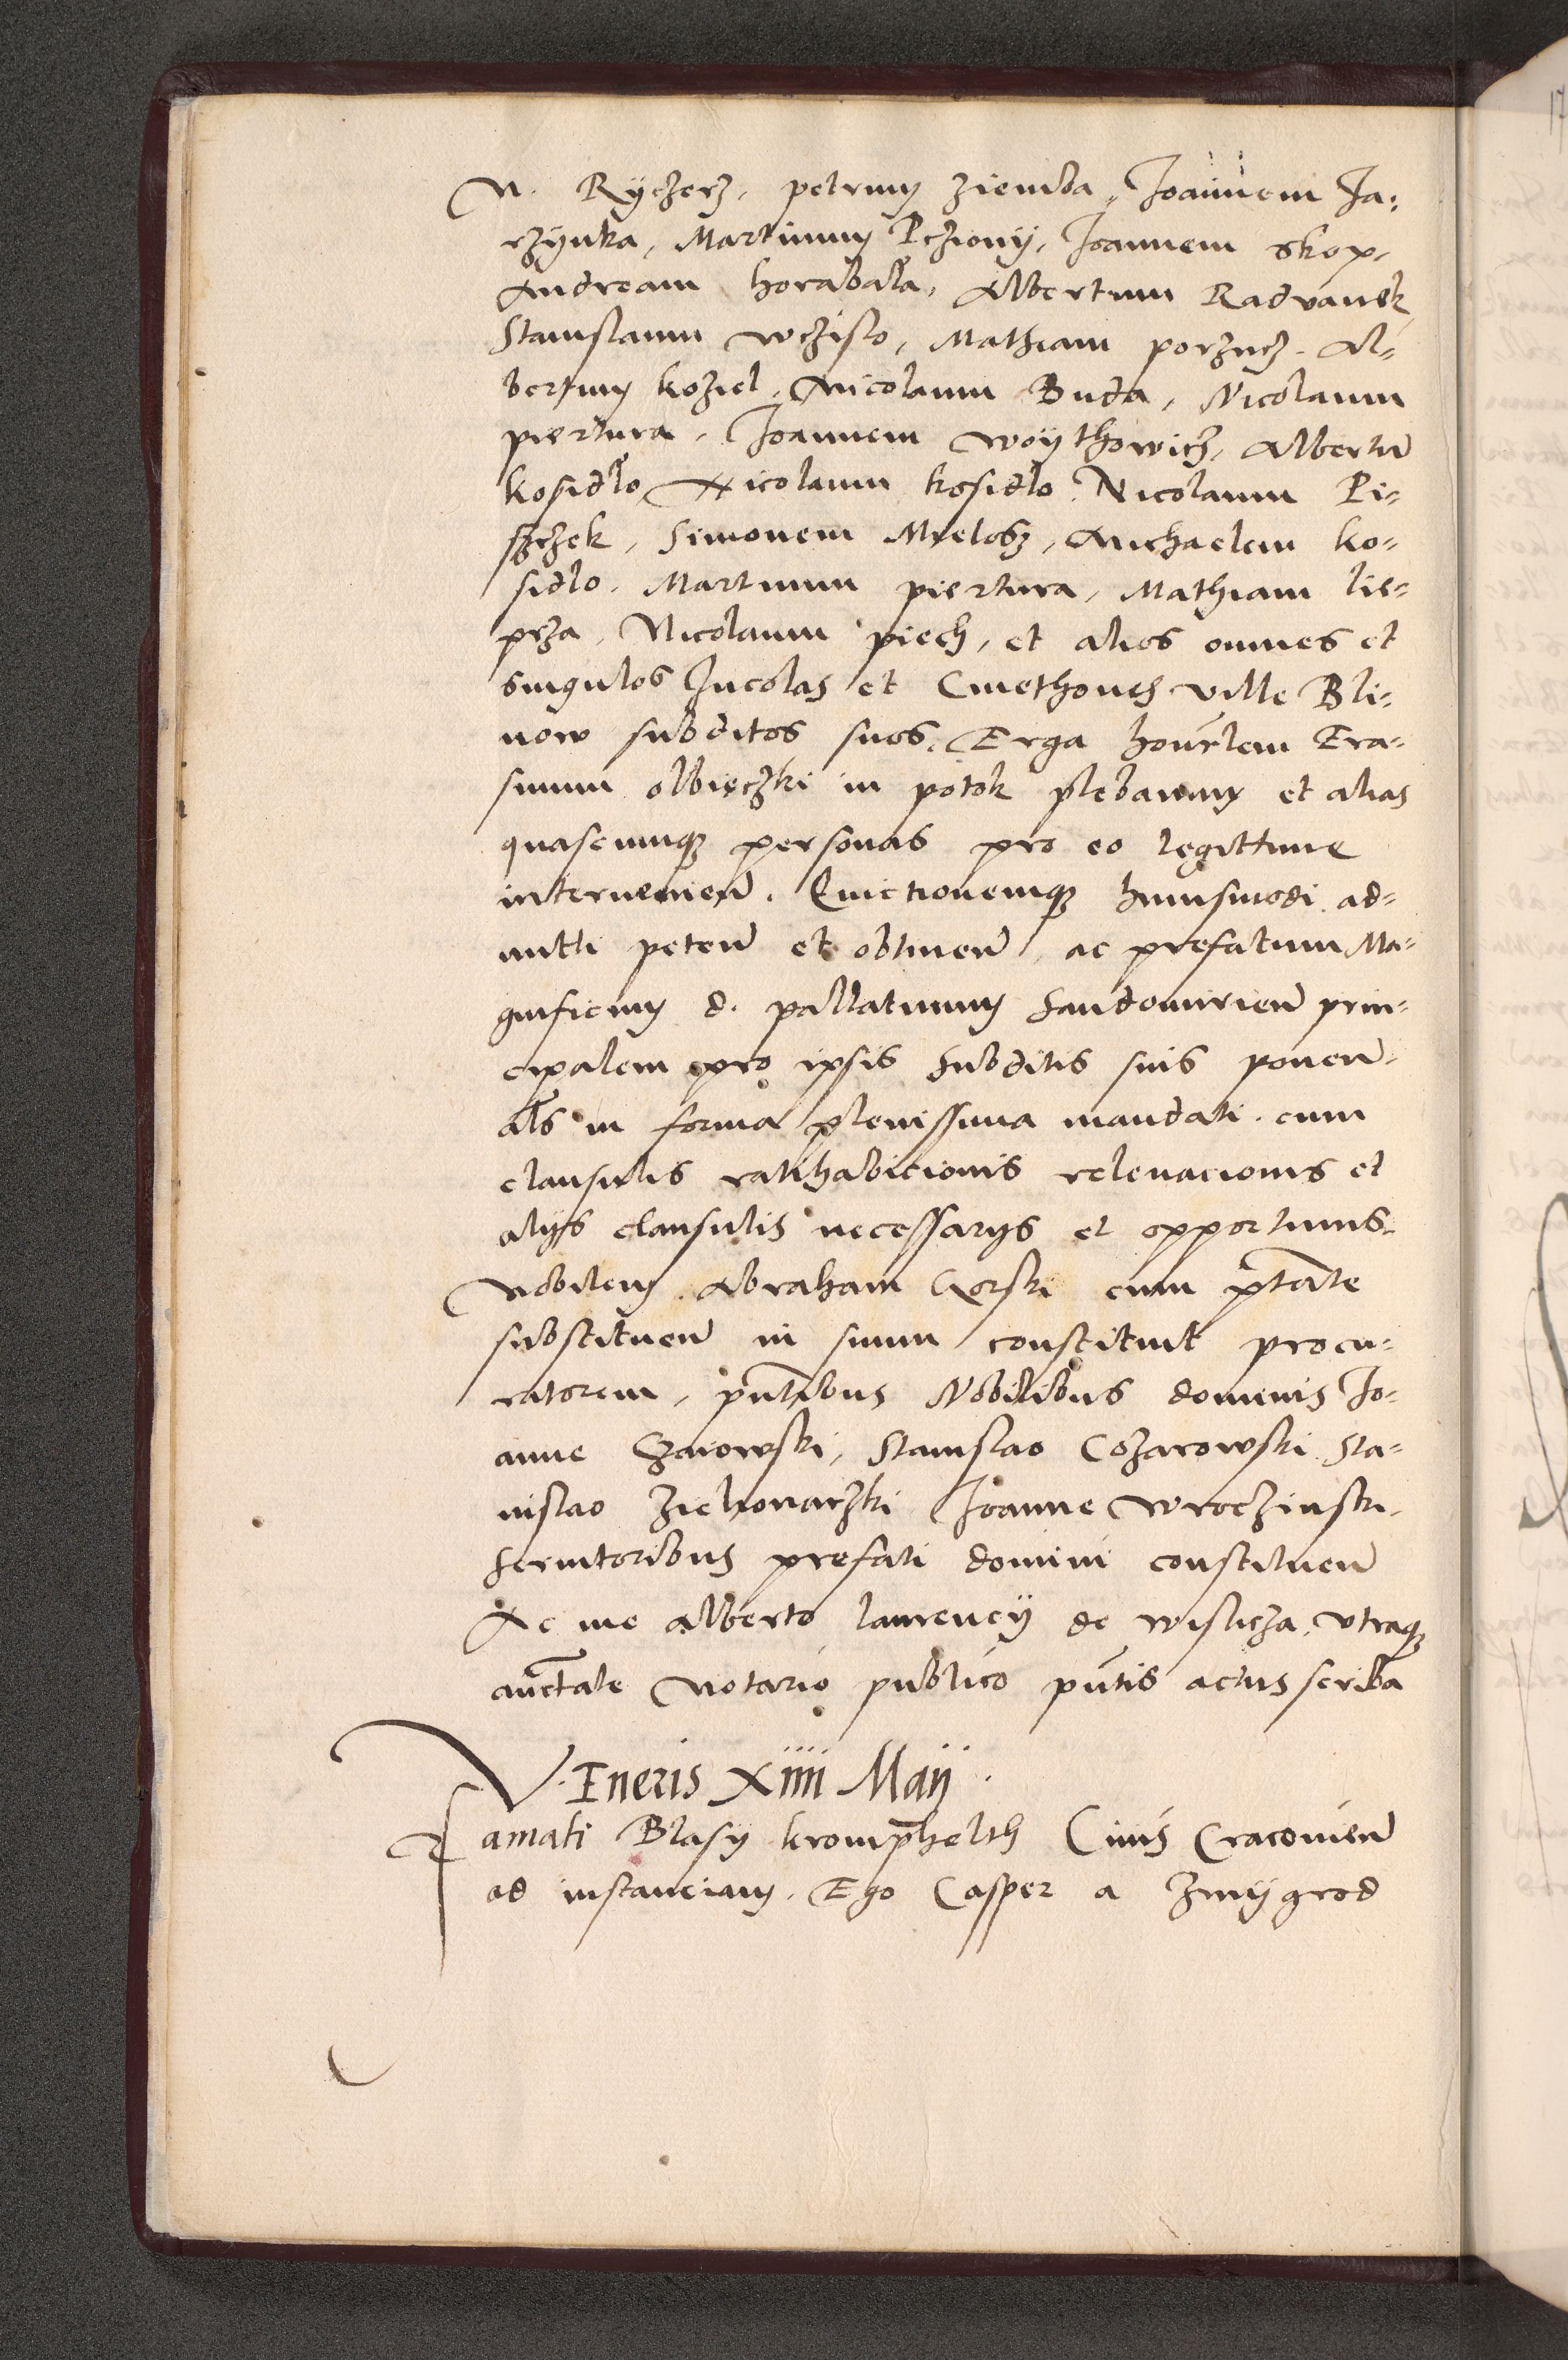 N. Rÿczerz, petrum Ziemba, Joannem Ja-
rzÿnka, Martinum Pczionÿ, Joannem skop,
Andream horabala, Albertum Radvanek
Stanislaum wczislo, Mathiam porzucz. Al-
bertum koziel, Nicolaum Buda, Nicolaum
piertura, Joannem woÿthowicz, Albertū
kosidlo Nicolaum kosidlo. Nicolaum Pi-
szczek, Simonem Mielosz, Michaelem ko-
sidlo. Martinum piertura, Mathiam lie-
prza, Nicolaum piech, et alios omnes et
singulos Incolas et Cmethones ville Bli-
now subditos suos. Erga honrlem Era-
smum olbieczki in potok plebanum et alias
quascumq; personas pro eo legittime
interuenien̄. Euictionemq; huiusmodi ad-
mitti peten̄ et obtinen̄, ac prefatum Ma-
gnificum d. pallatinum Sandomirien̄ prin-
cipalem pro ipsis subditis suis ponen̄.
als in forma plenissima mandati. cum
clausulis ratihabicionis releuacionis et
alijs clausulis necessarijs et opportunis.
Nobilem. Abraham Gorski cum ptāte
substituen̄ in suum constituit procu-
ratorem, pntibus Nobilibus dominis Jo-
anne Czaiowski, Stanislao Cozarowski Sta-
nislao Zielionaczki Joanne Wroczinski.
Seruitoribus prefati domini constituen̄
Ac me Alberto laurencÿ de wislicza, vtraq;
auctate Notario publico pntis actus scriba
VEneris XIIII Maij.
Famati Blasij kromphelth Ciuis Cracouien̄
ad instanciam. Ego Casper a Zmÿgrod
17